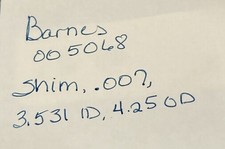 Barnes
005068
Shim, .007,
3.531 ID, 4.250D